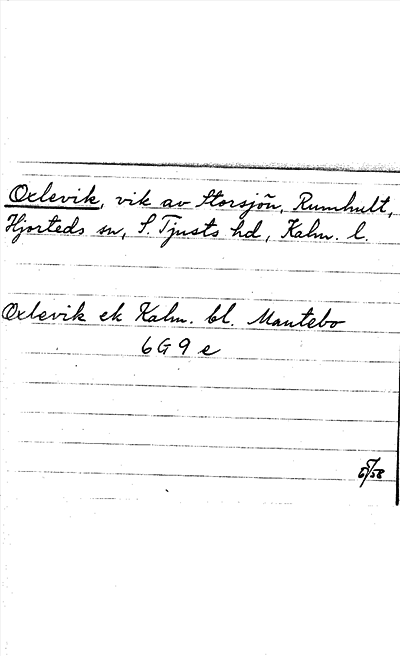 Oxlevik, vik av Storsjön, Rumhult,
Hjorteds sn, S. Tjusts hd, Kalm. l.
Oxlevik ek Kalm. bl. Mantebo
6G9e